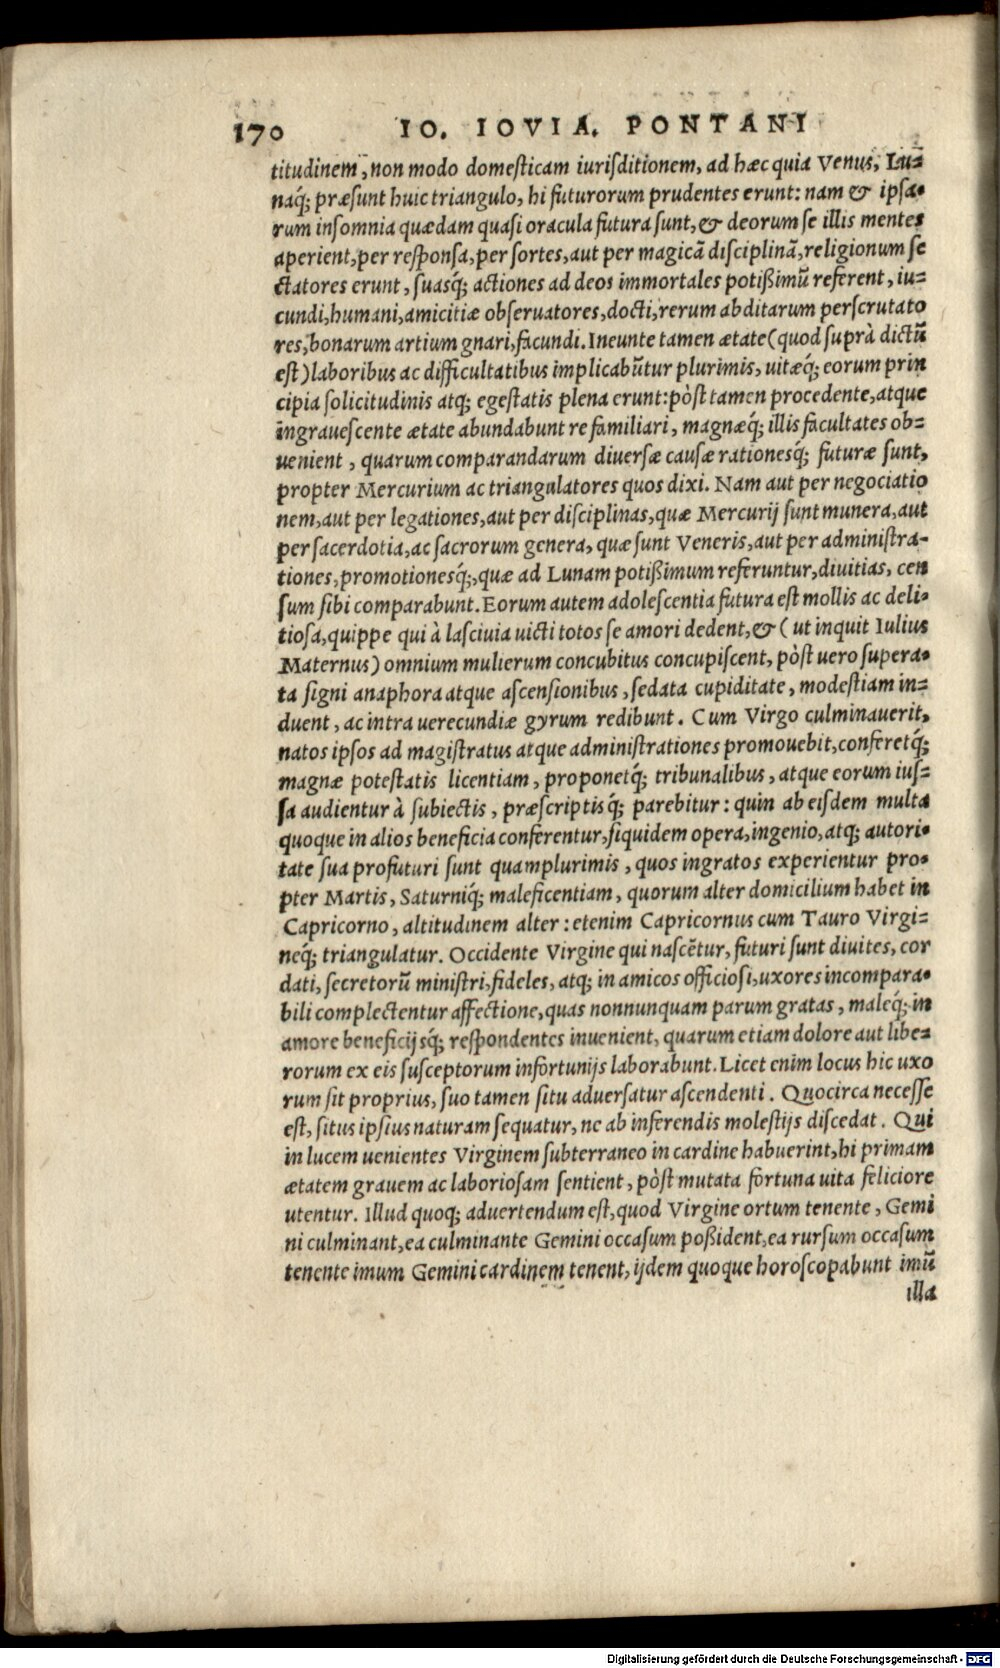 170 IO. IOVIA. PONTANI
titudinem, non modo domesticam iurisditionem, ad hæc quia Venus, Lu=
naq́; præsunt huic triangulo, hi futurorum prudentes erunt: nam & ipsa-
rum insomnia quædam quasi oracula futura sunt, & deorum se illis mentes
aperient, per responsa, per sortes, aut per magicā disciplinā, religionum se
ctatores erunt, suasq́; actiones ad deos immortales potißimū referent, iu=
cundi, humani, amicitiæ obseruatores, docti, rerum abditarum perscrutato
res, bonarum artium gnari, facundi. Ineunte tamen ætate (quod suprà dictū
est) laboribus ac difficultatibus implicabūtur plurimis, uitæq́; eorum prin
cipia solicitudinis atq; egestatis plena erunt: pòst tamen procedente, atque
ingrauescente ætate abundabunt re familiari, magnæq́; illis facultates ob=
uenient, quarum comparandarum diuersæ causæ rationesq́; futuræ sunt,
propter Mercurium ac triangulatores quos dixi. Nam aut per negociatio
nem, aut per legationes, aut per disciplinas, quæ Mercurij sunt munera, aut
per sacerdotia, ac sacrorum genera, quæ sunt Veneris, aut per administra-
tiones, promotionesq́;, quæ ad Lunam potißimum referuntur, diuitias, cen
sum sibi comparabunt. Eorum autem adolescentia futura est mollis ac deli-
tiosa, quippe qui à lasciuia uicti totos se amori dedent, & (ut inquit Iulius
Maternus) omnium mulierum concubitus concupiscent, pòst uero supera-
ta signi anaphora atque ascensionibus, sedata cupiditate, modestiam in=
duent, ac intra uerecundiæ gyrum redibunt. Cum Virgo culminauerit,
natos ipsos ad magistratus atque administrationes promouebit, conferetq́;
magnæ potestatis licentiam, proponetq́; tribunalibus, atque eorum ius=
sa audientur à subiectis, præscriptisq́; parebitur: quin ab eisdem multa
quoque in alios beneficia conferentur, siquidem opera, ingenio, atq; autori-
tate sua profuturi sunt quamplurimis, quos ingratos experientur pro-
pter Martis, Saturniq́; maleficentiam, quorum alter domicilium habet in
Capricorno, altitudinem alter: etenim Capricornus cum Tauro Virgi=
neq́; triangulatur. Occidente Virgine qui nascētur, futuri sunt diuites, cor
dati, secretorū ministri, fideles, atq; in amicos officiosi, uxores incompara-
bili complectentur affectione, quas nonnunquam parum gratas, maleq́; in
amore beneficijsq́; respondentes inuenient, quarum etiam dolore aut libe=
rorum ex eis susceptorum infortunijs laborabunt. Licet enim locus hic uxo
rum sit proprius, suo tamen situ aduersatur ascendenti. Quocirca necesse
est, situs ipsius naturam sequatur, ne ab inferendis molestijs discedat. Qui
in lucem uenientes Virginem subterraneo in cardine habuerint, hi primam
ætatem grauem ac laboriosam sentient, pòst mutata fortuna uita feliciore
utentur. Illud quoq; aduertendum est, quod Virgine ortum tenente, Gemi
ni culminant, ea culminante Gemini occasum poßident, ea rursum occasum
tenente imum Gemini cardinem tenent, ijdem quoque horoscopabunt imū
illa
Digitalisierung gefördert durch die Deutsche Forschungsgemeinschaft - DFG